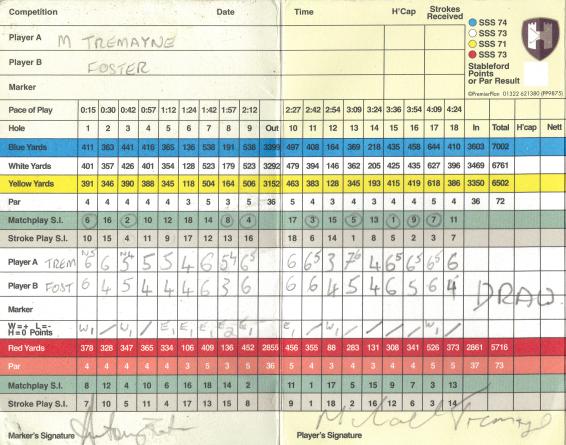 Competition Date Time H'Cap Strokes Received
Player A M TREMAYNE
Player B FOSTER
Marker
SSS 74
SSS 73
SSS 71
SSS 73
Stableford Points or Par Result
©PremierPlan 01322 621380 (PP9875)
Pace of Play 0:15 0:30 0:42 0:57 1:12 1:24 1:42 1:57 2:12 2:27 2:42 2:54 3:09 3:24 3:36 3:54 4:09 4:24
Hole 1 2 3 4 5 6 7 8 9 Out 10 11 12 13 14 15 16 17 18 In Total H'cap Nett
Blue Yards 411 363 441 416 365 136 538 191 538 3399 497 408 164 369 218 435 458 644 410 3603 7002
White Yards 401 357 426 401 354 128 523 179 523 3292 479 394 146 362 205 425 435 627 396 3469 6761
Yellow Yards 391 346 390 388 345 118 504 164 506 3152 463 383 128 345 193 415 419 618 386 3350 6502
Par 4 4 4 4 4 3 5 3 5 36 5 4 3 4 3 4 4 5 4 36 72
Matchplay S.I. 6 16 2 10 12 18 14 8 4 17 3 15 5 13 1 9 7 11
Stroke Play S.I. 10 15 4 11 9 17 12 13 16 18 6 14 1 8 5 2 3 7
Player A TREM 6 6 5 5 5 4 6 6 6 3 4 6
Player B FOST 6 4 5 4 4 4 6 3 6 6 6 4 5 4 6 5 6 4 DRAW
Marker
W=+ L=- H=0 Points
Red Yards 378 328 347 365 334 106 409 136 452 2855 456 355 88 283 131 308 341 526 373 2861 5716
Par 4 4 4 4 4 3 5 3 5 36 37 73
Matchplay S.I. 8 12 4 10 6 16 18 14 2 11 1 17 5 15 9 7 3 13
Stroke Play S.I. 7 10 5 11 4 17 13 15 8 9 1 18 2 16 12 6 3 14
Marker's Signature Player's Signature